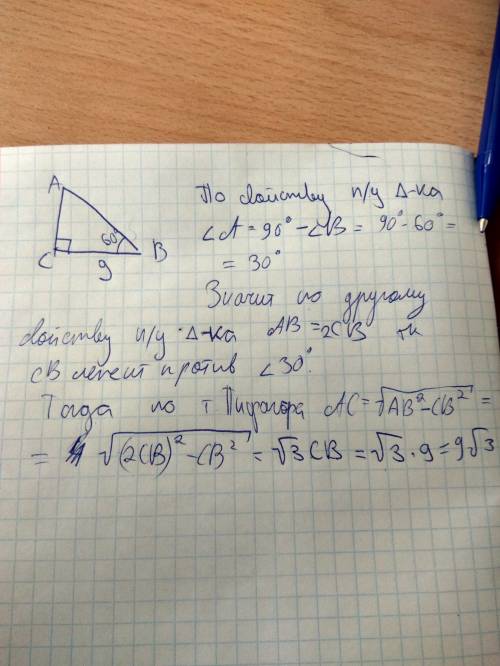 A
По свойству п/у Δ-ка
60°
∠A = 90° - ∠B = 90° - 60° =
C B
9
= 30°
Значит по другому
свойству п/у Δ-ка AB = 2CB тк
CB лежит против ∠30°.
Тогда по т Пифагора AC = √AB² - CB² =
= √(2CB)² - CB² = √3 CB = √3 · 9 = 9√3